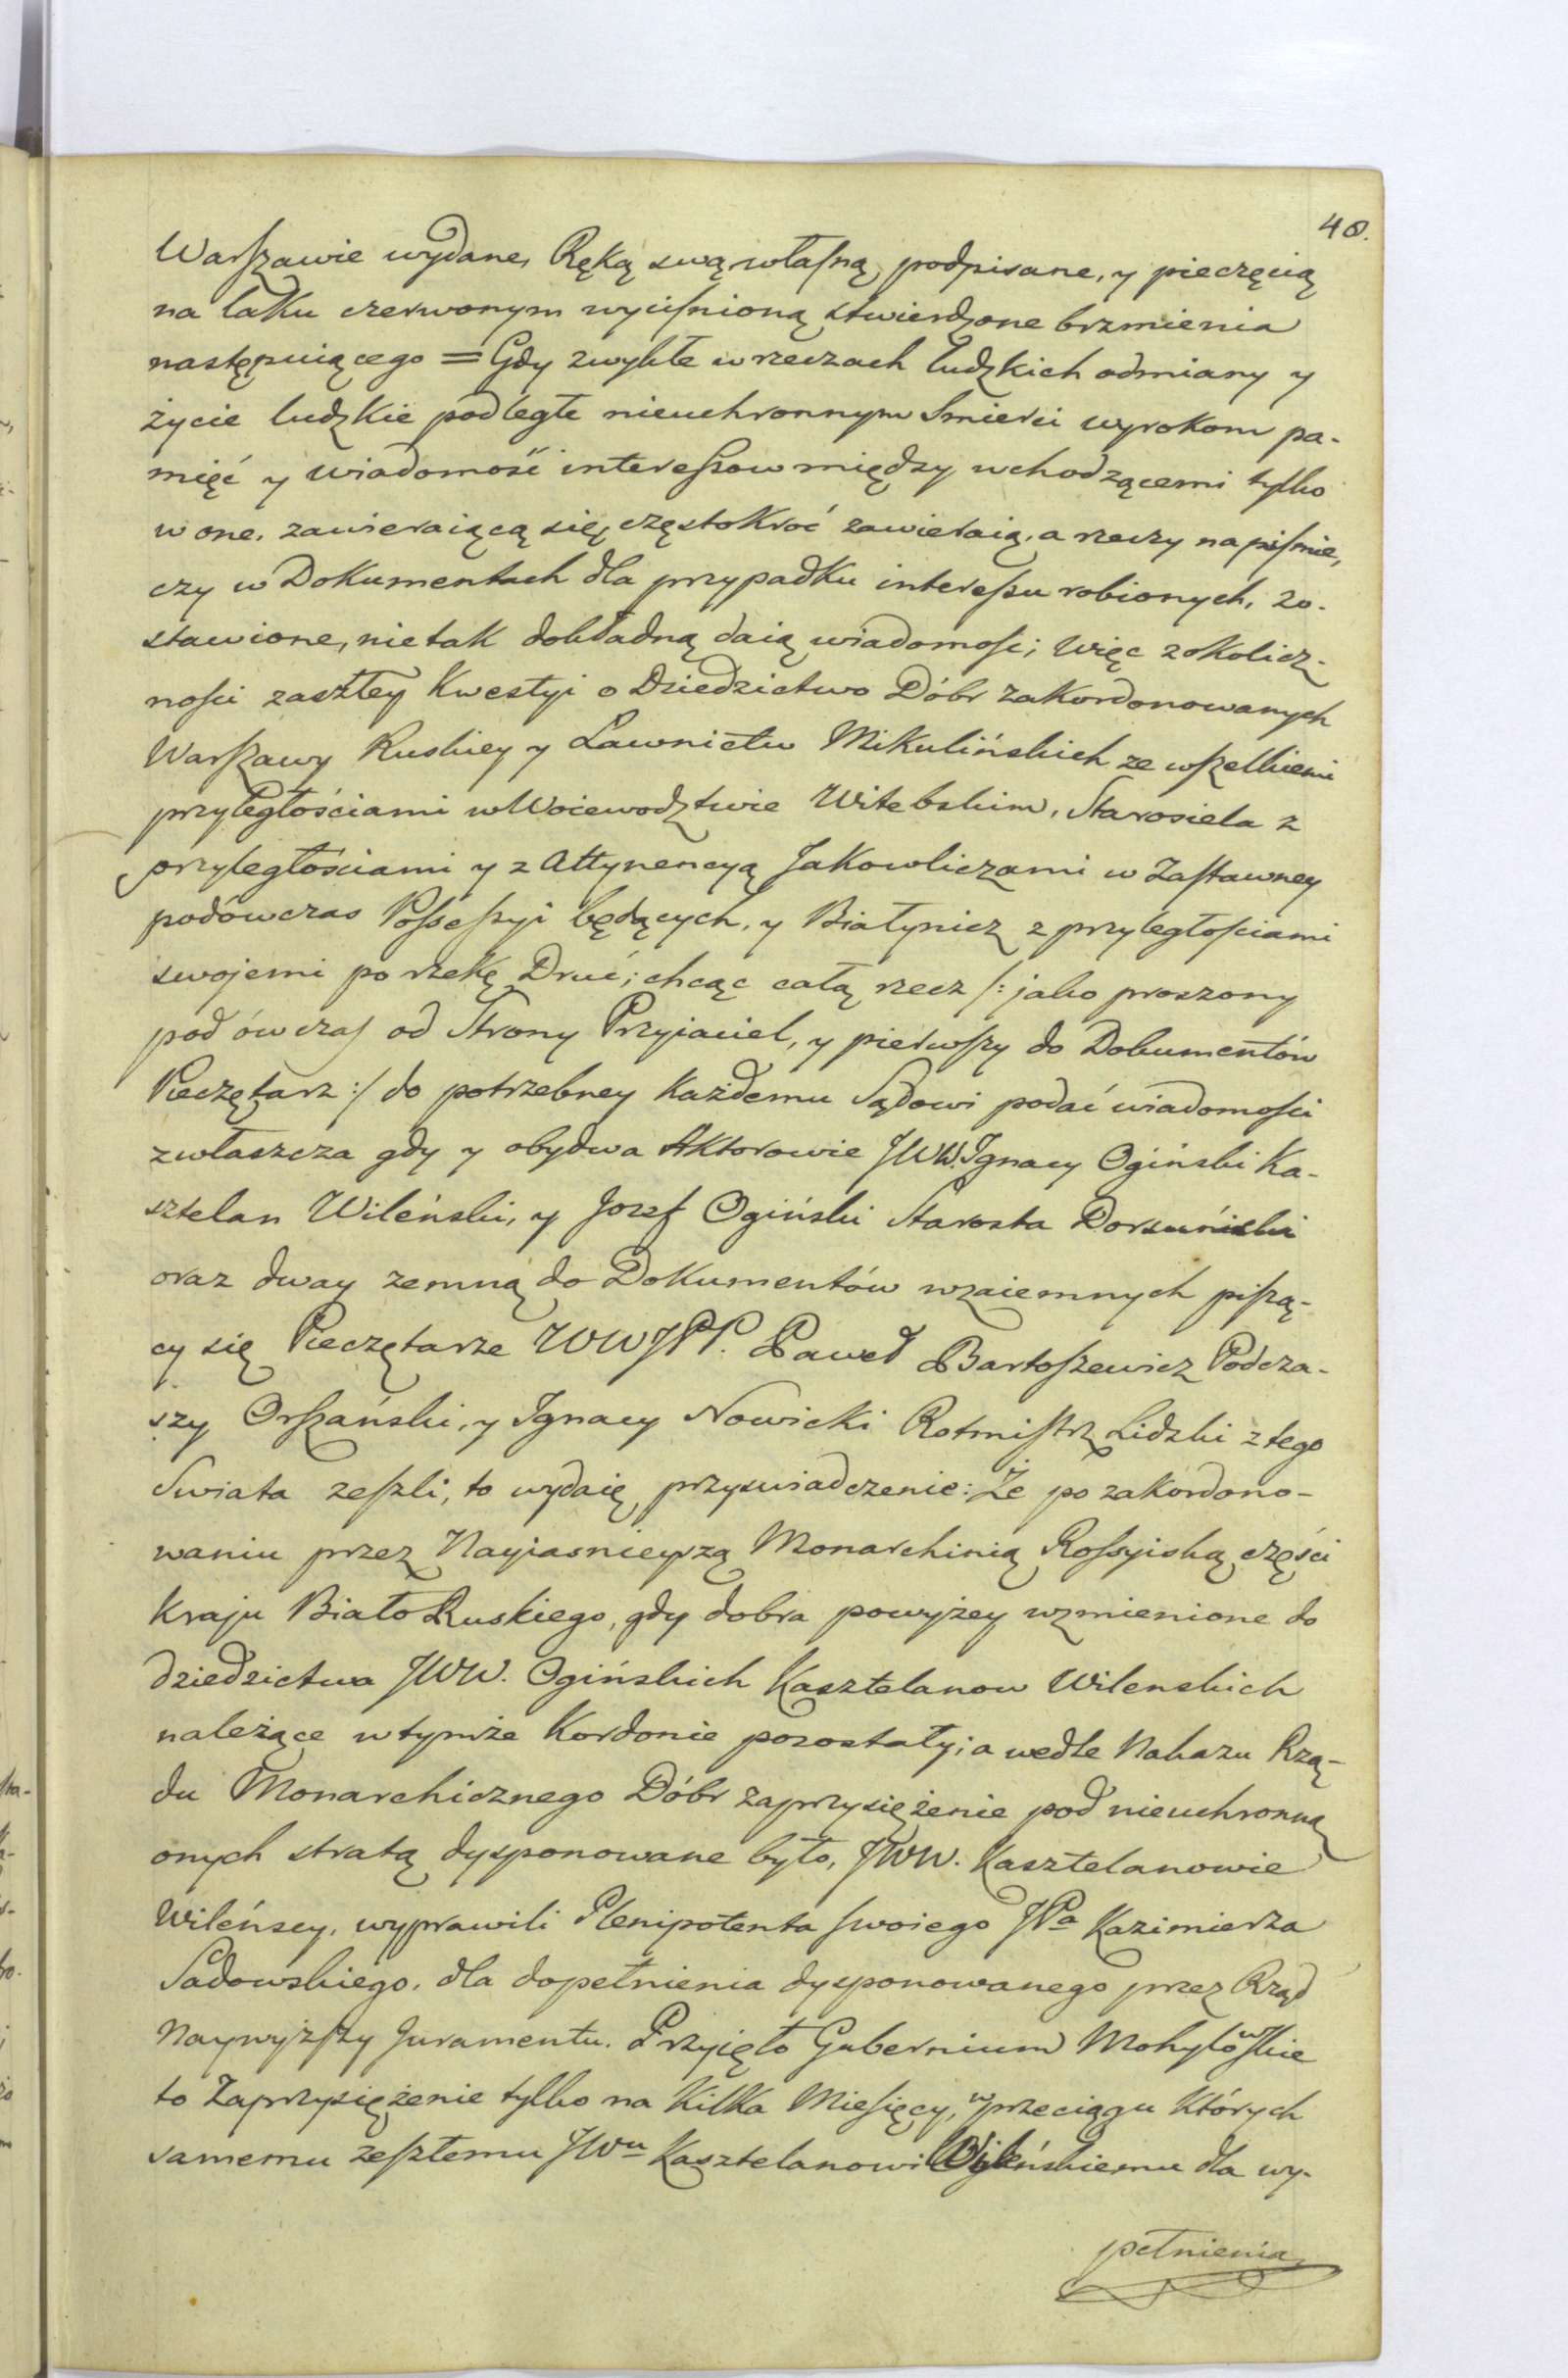 48.
Warszawie wydane, Ręką swą własną podpisane, y pieczęcią
na laku czerwonym wyciśnioną stwierdzone brzmienia
następuiącego = Gdy zwykłe w rzeczach ludzkich odmiany y
życie ludzkie podległe nieuchronnym Smierci wyrokom pa-
mięć y wiadomość interessow między wchodzącemi tylko
w one, zawieraiącą się, częstokroć zawieraią, a rzeczy na piśmie,
czy w Dokumentach dla przypadku interessu robionych, zo-
stawione, nie tak dokładną daią wiadomośc; więc z okolicz-
ności zaszłey Kwestyi o Dziedzictwo Dóbr zakordonowanych
Warszawy Ruskiey y Ławnictw Mikulińskich ze wszelkiemi
przyległościami w Woiewodztwie Witebskim, Starosiela z
przyległościami y z Attynencyą Jakowliczami w Zastawney
podówczas Possessyi będących, y Białynicz z przyległościami
swojemi po rzekę Druć; chcąc całą rzecz /: jako proszony
pod ówczas od Strony Przyiaciel, y pierwszy do Dokumentów
Pieczętarz :/ do potrzebney każdemu Sądowi podać wiadomości
zwłaszcza gdy y obydwa Aktorowie JWW. Ignacy Ogiński Ka-
sztelan Wileński, y Jozef Ogiński Starosta Dorsuniski
oraz dway zemną do Dokumentów wzaiemnych piszą-
cy się Pieczętarze WWJPP. Paweł Bartoszewicz Podcza-
szy Orszański, y Ignacy Nowicki Rotmistrz Lidzki z tego
Swiata zeszli, to wydaię przyswiadczenie: Że po zakordono-
waniu przez Nayiasnieyszą Monarchinią Rossyiską części
Kraju Biało Ruskiego, gdy dobra powyżey wzmienione do
dziedzictwa JWW. Ogińskich Kasztelanow Wilenskich
należące w tymże Kordonie pozostały; a wedle Nakazu Rzą-
du Monarchicznego Dóbr zaprzysiężenie pod nieuchronną
onych stratą dysponowane było, JWW. Kasztelanowie
Wileńscy, wyprawili Plenipotenta swoiego JPa Kazimierza
Sadowskiego, dla dopełnienia dysponowanego przez Rząd
Naywyższy Juramentu. Przyięło Gubernium Mohylowskie
to Zaprzysiężenie tylko na kilka Miesięcy, w przeciągu których
samemu zeszłemu JWu Kasztelanowi Wileńskiemu dla wy-
pełnienia